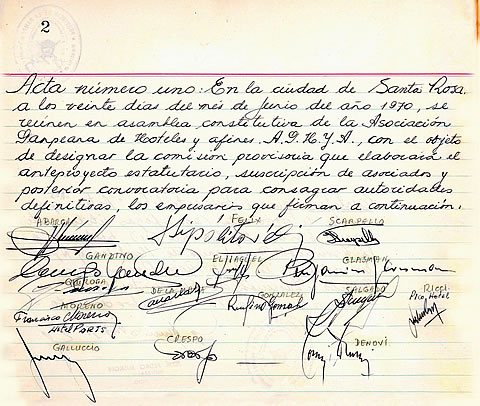 2
Acta número uno: En la ciudad de Santa Rosa,
a los veinte días del mes de Junio del año 1970, se
reúnen en asamblea constitutiva de la Asociación
Pampeana de Hoteles y afines A.P.H.Y.A., con el objeto
de designar la comisión provisoria que elaborará el
anteproyecto estatutario, suscripción de asociados y
posterior convocatoria para consagrar autoridades
definitivas, los empresarios que firman a continuación.
FELIX SCARPELLO
Hipólito
GANDINO GLASMAN
QUIROGA DE LA GONZALEZ SALGADO Ricci
Pico, Hotel
MORENO
Francisco Moreno
Hotel PORTS
GALLUCCIO CRESPO DENOVI